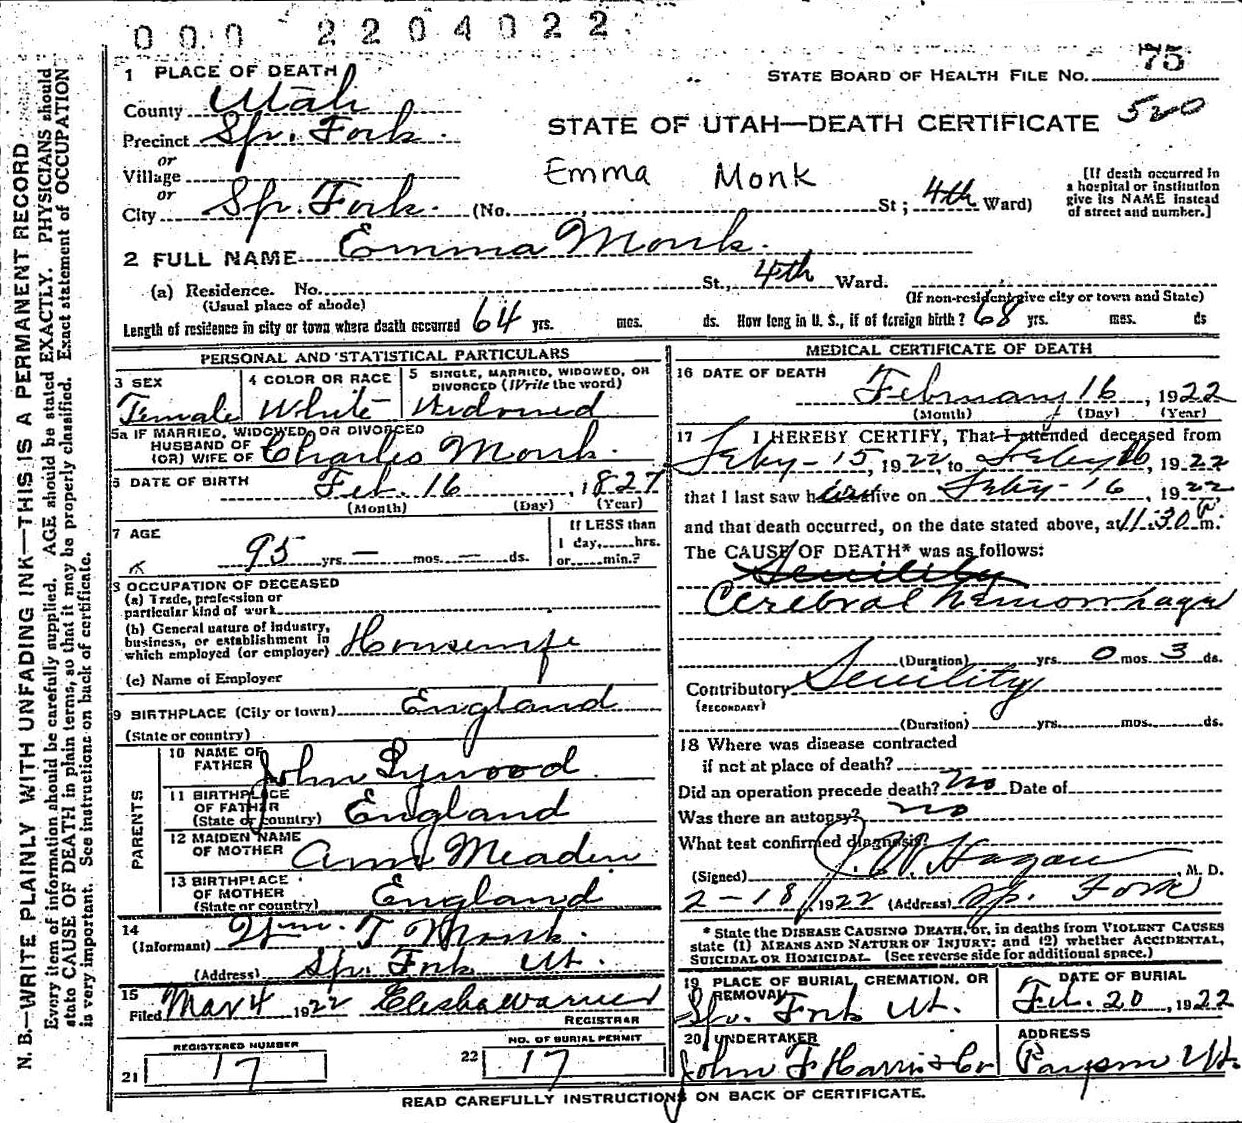 000 2204022
75
1 PLACE OF DEATH
STATE BOARD OF HEALTH FILE No.
County Utah
Precinct Sp. Fork.
STATE OF UTAH—DEATH CERTIFICATE 520
or
Village
Emma Monk
or
City Sp. Fork. (No. St; 4th Ward)
[If death occurred in
a hospital or institution
give its NAME instead
of street and number.]
2 FULL NAME Emma Monk.
(a) Residence. No. St., 4th Ward.
(Usual place of abode)
(If non-resident give city or town and State)
Length of residence in city or town where death occurred 64 yrs. mos. ds. How long in U. S., if of foreign birth? 68 yrs. mos. ds
PERSONAL AND STATISTICAL PARTICULARS
3 SEX
Female
4 COLOR OR RACE
White
5 SINGLE, MARRIED, WIDOWED, OR
DIVORCED (Write the word)
Widowed
5a IF MARRIED, WIDOWED, OR DIVORCED
HUSBAND OF
(OR) WIFE OF Charles Monk.
6 DATE OF BIRTH Feb. 16, 1827
(Month) (Day) (Year)
7 AGE
95 yrs — mos. — ds.
If LESS than
1 day, hrs.
or min.?
8 OCCUPATION OF DECEASED
(a) Trade, profession or
particular kind of work
(b) General nature of industry,
business, or establishment in
which employed (or employer) Housewife
(c) Name of Employer
9 BIRTHPLACE (City or town) England
(State or country)
PARENTS
10 NAME OF
FATHER John
11 BIRTHPLACE
OF FATHER
(State or country) England
12 MAIDEN NAME
OF MOTHER Ann Meaden
13 BIRTHPLACE
OF MOTHER
(State or country) England
14
(Informant) Wm. T Monk.
(Address) Sp. Fork Ut.
15
Filed Mar 4 1922 Elisha Warner
REGISTRAR
REGISTERED NUMBER
21 17
NO. OF BURIAL PERMIT
22 17
MEDICAL CERTIFICATE OF DEATH
16 DATE OF DEATH
February 16, 1922
(Month) (Day) (Year)
17 I HEREBY CERTIFY, That I attended deceased from
Feby-15, 1922 to Feby 16, 1922
that I last saw her alive on Feby-16, 1922
and that death occurred, on the date stated above, at 11:30 P m.
The CAUSE OF DEATH* was as follows:
Senility
Cerebral hemorrhage
(Duration) yrs. 0 mos 3 ds.
Contributory Senility
(SECONDARY)
(Duration) yrs. mos. ds.
18 Where was disease contracted
if not at place of death?
Did an operation precede death? no Date of
Was there an autopsy? no
What test confirmed diagnosis?
(Signed) J. W. Hagan, M. D.
2-18, 1922 (Address) Sp. Fork
* State the DISEASE CAUSING DEATH, or, in deaths from VIOLENT CAUSES
state (1) MEANS AND NATURE OF INJURY; and (2) whether ACCIDENTAL,
SUICIDAL OR HOMICIDAL. (See reverse side for additional space.)
19 PLACE OF BURIAL, CREMATION, OR
REMOVAL
Sp. Fork Ut.
DATE OF BURIAL
Feb. 20, 1922
20 UNDERTAKER
John F Harris & Co
ADDRESS
Payson Ut.
READ CAREFULLY INSTRUCTIONS ON BACK OF CERTIFICATE.
N. B.—WRITE PLAINLY WITH UNFADING INK—THIS IS A PERMANENT RECORD
Every item of information should be carefully supplied. AGE should be stated EXACTLY. PHYSICIANS should
state CAUSE OF DEATH in plain terms, so that it may be properly classified. Exact statement of OCCUPATION
is very important. See instructions on back of certificate.